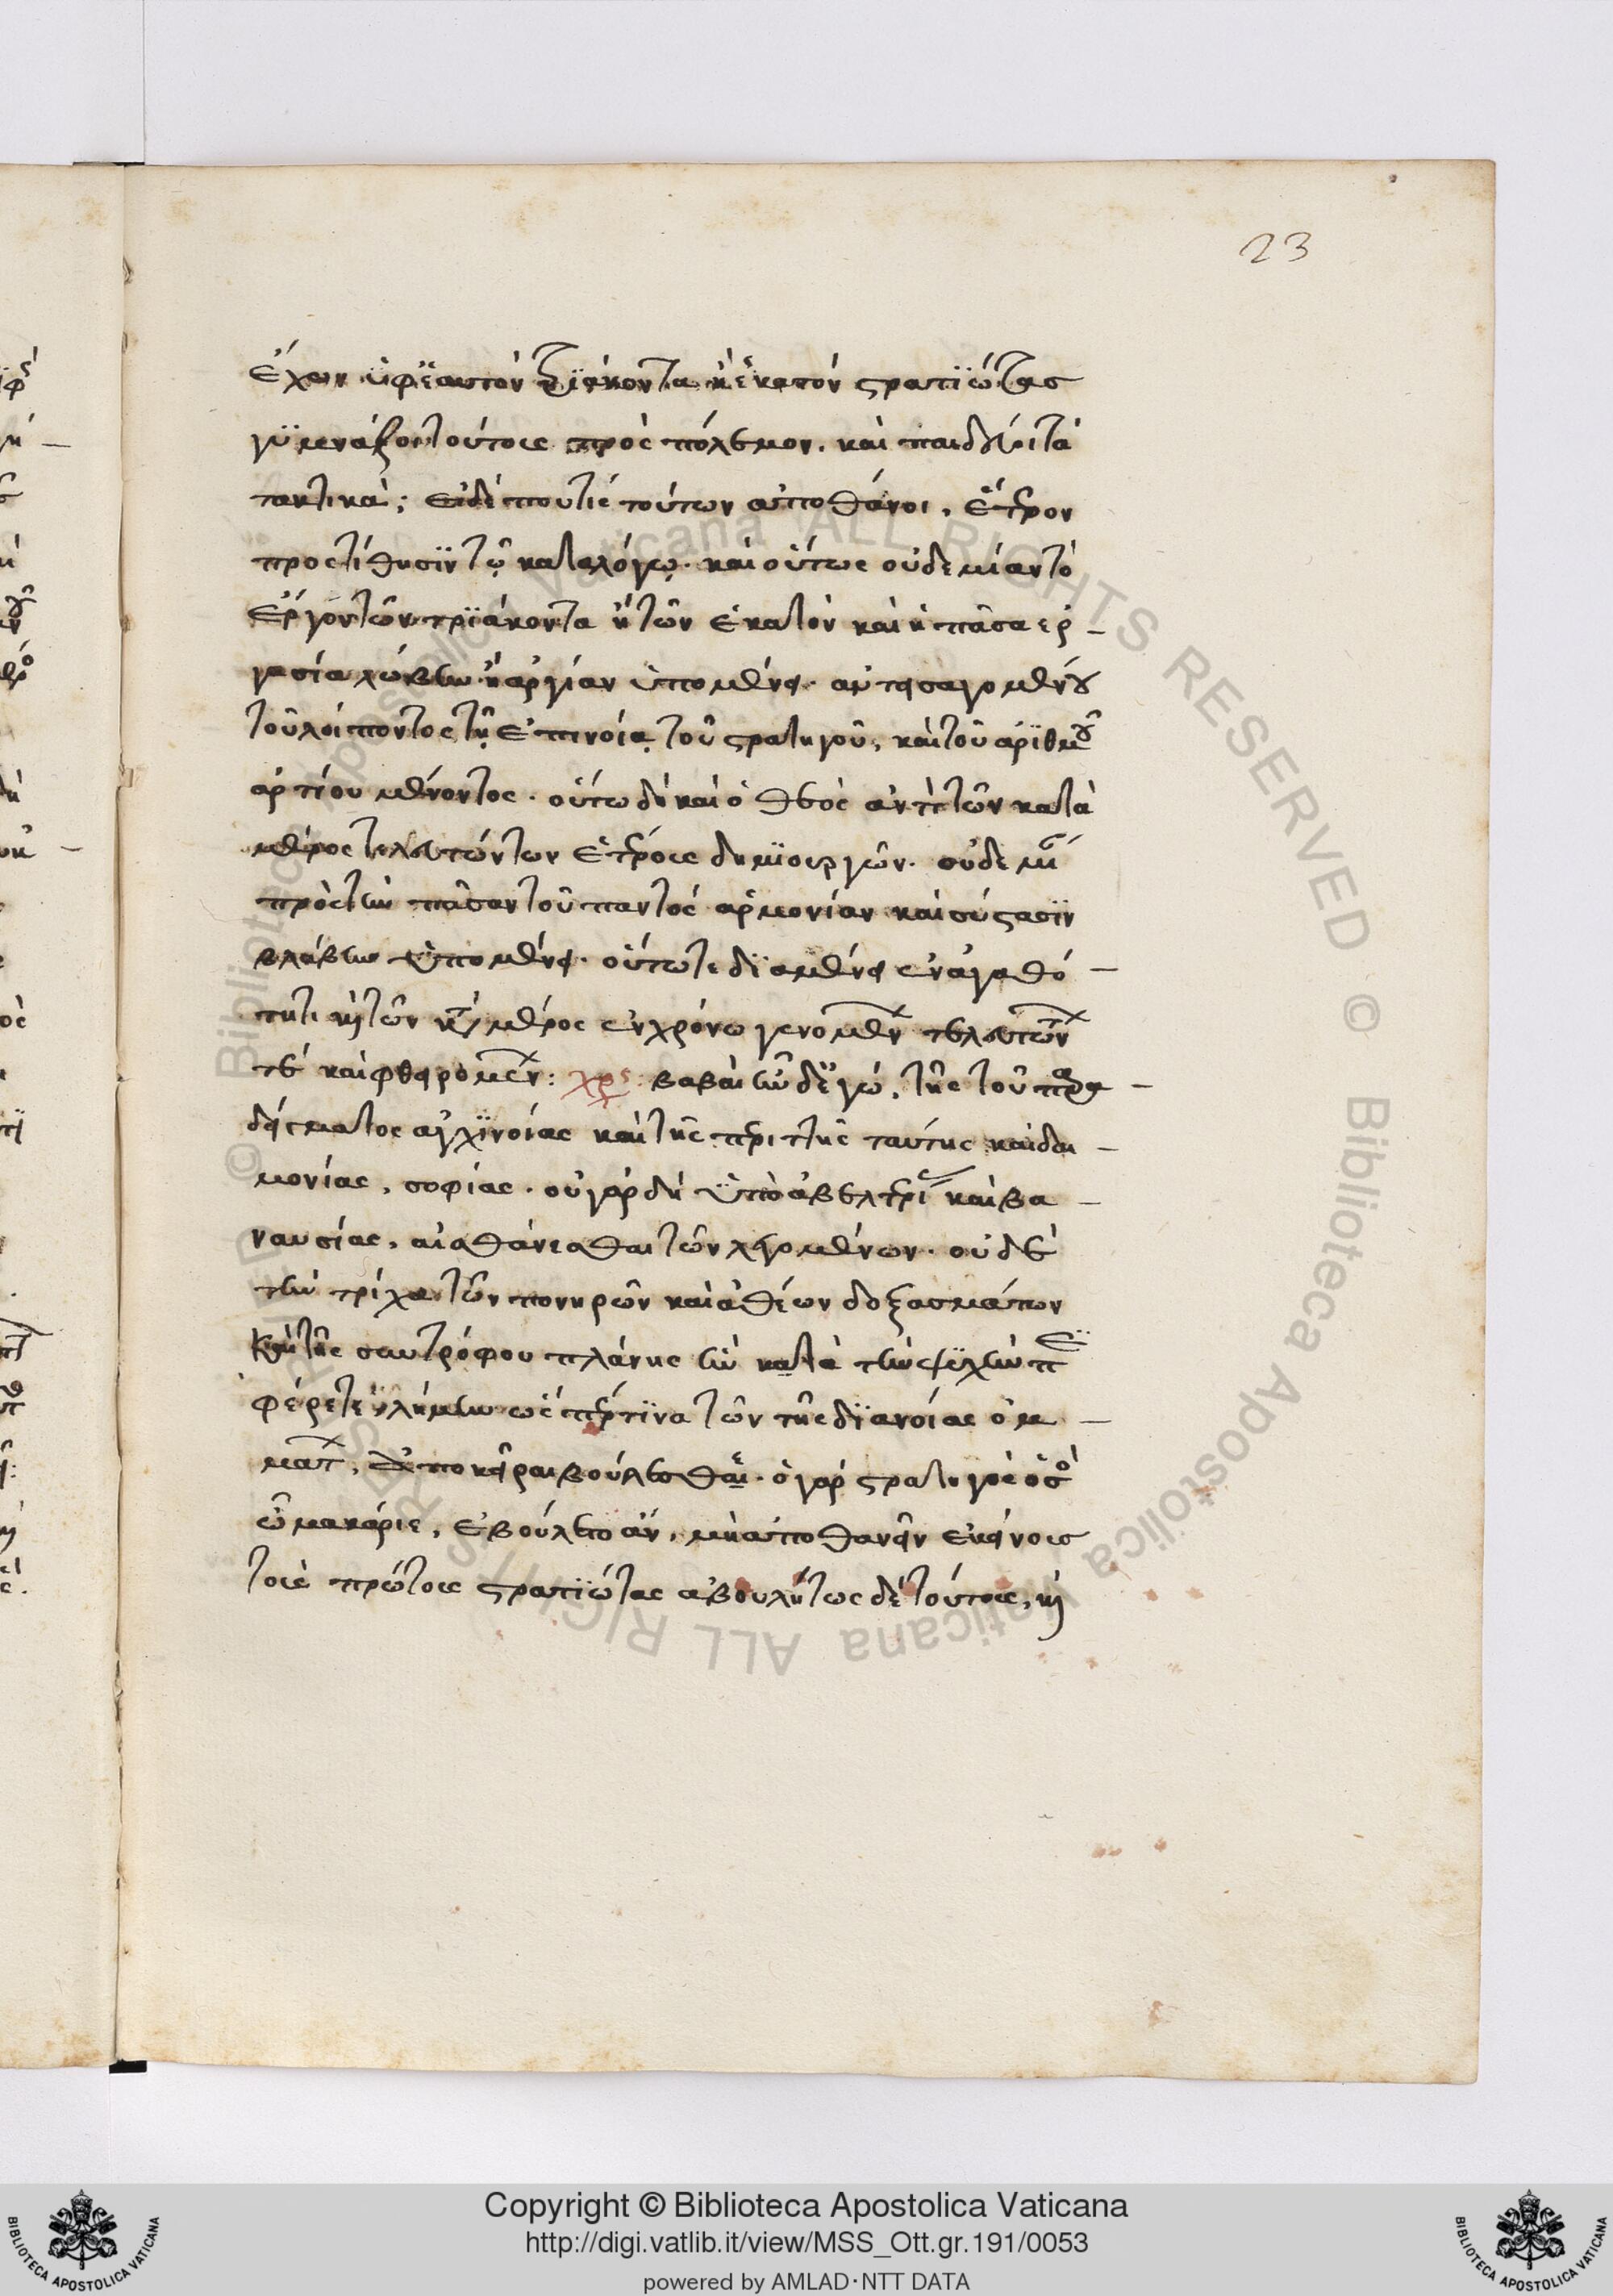 23
ἔχων ὑφ' ἑαυτὸν τριάκοντα ἢ ἑκατόν στρατιώτας
γυμνάζοι τούτους πρὸς πόλεμον. καὶ παιδεύοι τὰ
τακτικά; εἰ δέ που τις τούτων ἀποθάνοι, ἕτερον
προστίθησιν τῷ καταλόγῳ. καὶ οὕτως οὐδεμίαν τὸ
ἔργον τῶν τριάκοντα ἢ τῶν ἑκατὸν καὶ ἡ πᾶσα ἐρ-
γασία λώβην ἢ ἀργίαν ὑπομένει. ἀντεισαγομένου
τοῦ λοίποντος τῇ ἐπινοίᾳ τοῦ στρατηγοῦ, καὶ τοῦ ἀριθμοῦ
ἀρτίου μένοντος. οὕτω δὴ καὶ ὁ θεὸς ἀντὶ τῶν κατὰ
μέρος τελευτώντων ἑτέρους δημιουργῶν. οὐδεμίαν
πρὸς τὴν πᾶσαν τοῦ παντός ἁρμονίαν καὶ σύστασιν
βλάβην ὑπομένει. οὕτω τε διαμένει ἐν ἀγαθό-
τητι καὶ τῶν κατὰ μέρος ἐν χρόνω γενομένων τελευτώντων
τέ καὶ φθειρομένων: χρς: βαβαὶ ἦν δ' ἐγώ, τῆς τοῦ παρα-
δείγματος ἀγχινοίας καὶ τῆς περιττῆς ταύτης καὶ δαι-
μονίας, σοφίας. οὐ γάρ δὴ ὑπὸ ἀβελτερίας καὶ βα-
ναυσίας, αἰσθάνεσθαι τῶν λεγομένων. οὐδὲ
τὴν τρίχα τῶν πονηρῶν καὶ ἀθέων δοξασμάτων
καὶ τῆς συντρόφου πλάνης ἣν κατὰ τὴν ψυχὴν περι
φέρετε λήμην ὥσπερ τινα τῶν τῆς διανοίας ὀμ-
μάτων, ἀποκεῖραι βούλεσθαι. ὁ γάρ στρατηγὸς ὅσον
ὦ μακάριε, ἐβούλετο ἄν, μὴ ἀποθανεῖν ἐκείνους
τοὺς πρώτους στρατιώτας ἀβουλήτως δὲ τούτους, καὶ
Copyright © Biblioteca Apostolica Vaticana
http://digi.vatlib.it/view/MSS_Ott.gr.191/0053
powered by AMLAD·NTT DATA